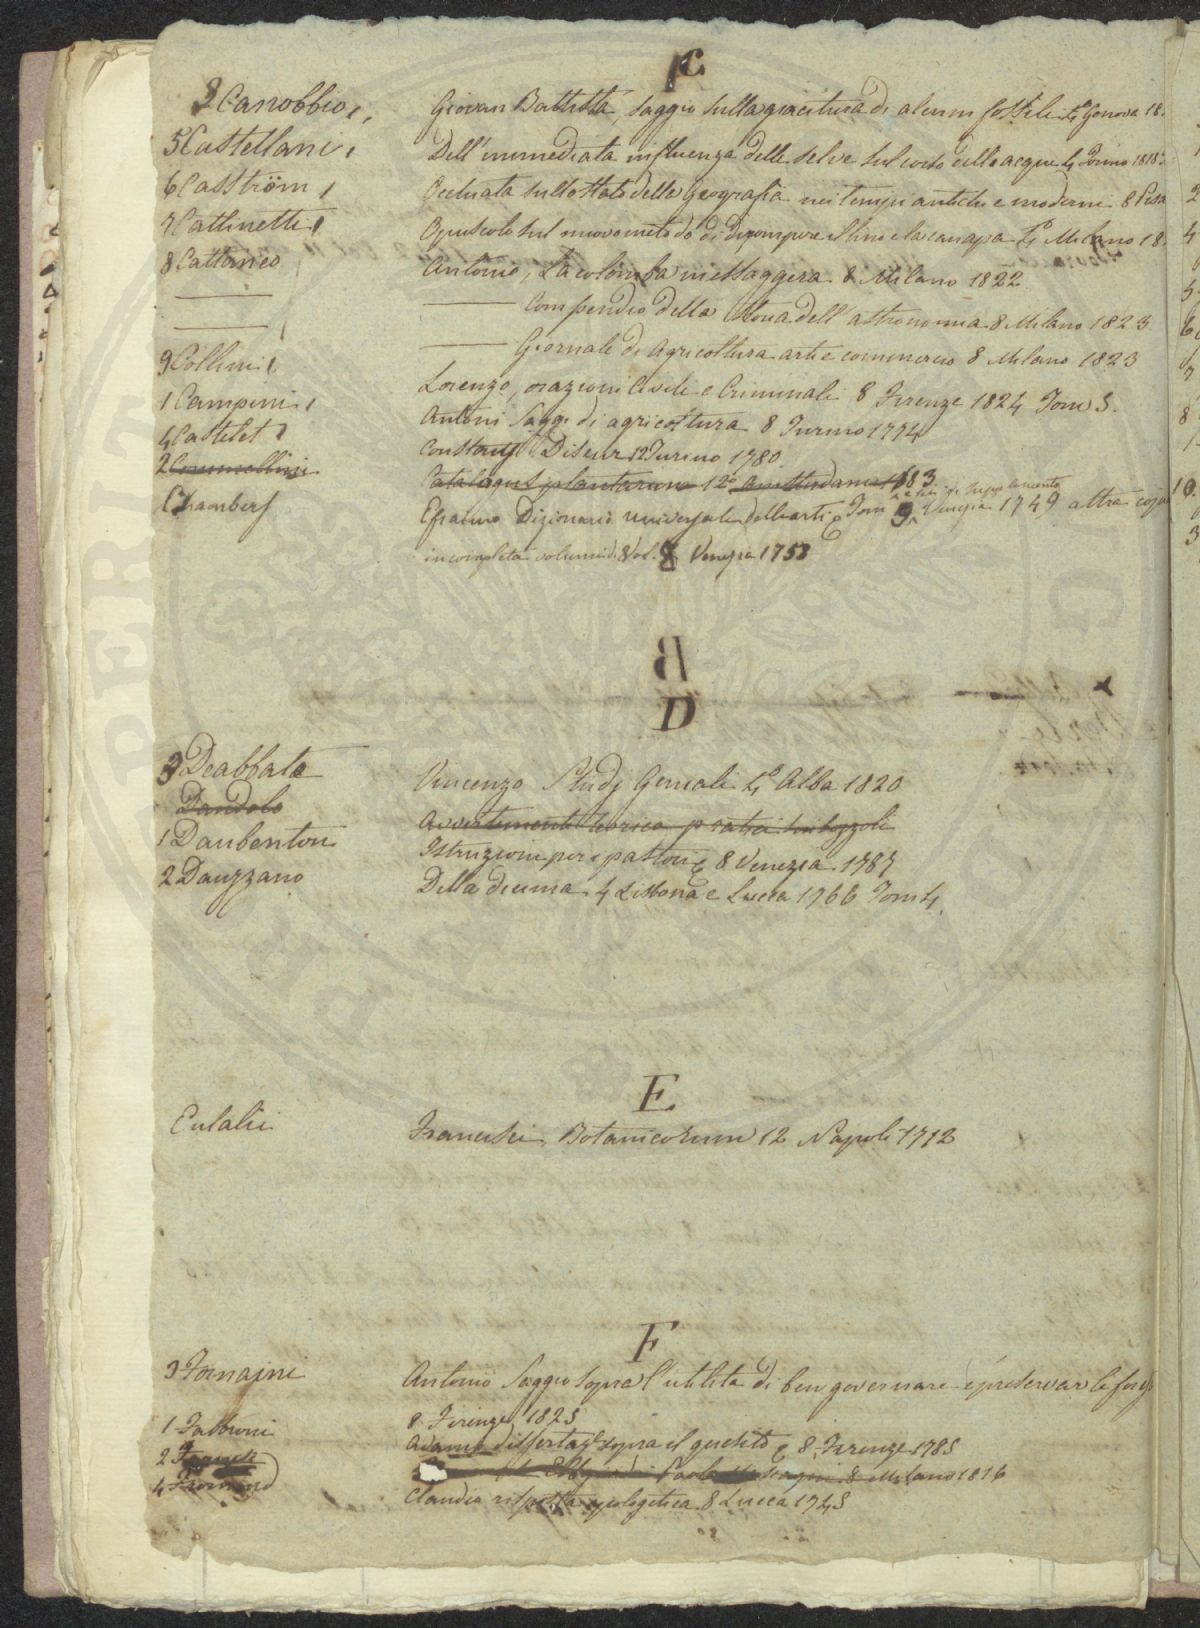 C
3 Canobbio, Giovan Battista Saggio sulla giacitura di alcuni fossili 4º Genova 18
5 Castellani, Dell'immediata influenza delle selve sul corso delle acque 4 Torino 1818
6 Casström, Occhiata sullo stato della geografia nei tempi antichi e moderni 8 Pisa
7 Cattinetti, Opuscolo sul nuovo metodo di dirompere il lino e la canapa 4º Milano 18
8 Cattaneo Antonio, La colomba messaggera 8 Milano 1822
Compendio della Storia dell'astronomia 8 Milano 1823
Giornale di Agricoltura arti e commercio 8 Milano 1823
9 Collini, Lorenzo, orazioni Civili e Criminali 8 Firenze 1824 Tom 5.
1 Campini, Antoni Saggi di agricoltura 8 Turino 1774
4 Castelet Constans 12 Turino 1780
2 Commellini Catalogus plantarum 12º Amsterdami 1683.
Chambers Efraimo Dizionario universale delle arti Tom 9 di supplemento Venezia 1749 altra copia
incompleta volumi di 8 Vol. 8 Venezia 1758
B
D
3 Deabbate Vincenzo Studj Geniali 4º Alba 1820
Dandolo Avvertimenti teorico pratici sui bozzoli
1 Daubenton Istruzioni per i pastori 8 Venezia 1787
2 Dauzzano Della decima 4 Lisbona e Lucca 1766 Tom 4.
E
Eulalii Francisci Botanicorum 12 Napoli 1712
F
3 Fornaini Antonio Saggio sopra l'utilità di ben governare e preservar le foreste
8 Firenze 1825
1 Fabbroni Adamo dissertaz.e sopra il quesito 8 Firenze 1785
2 Elogio di Paolo Mascagni 8 Milano 1816
4 Fromond Claudio risposta apologetica 8 Lucca 1745